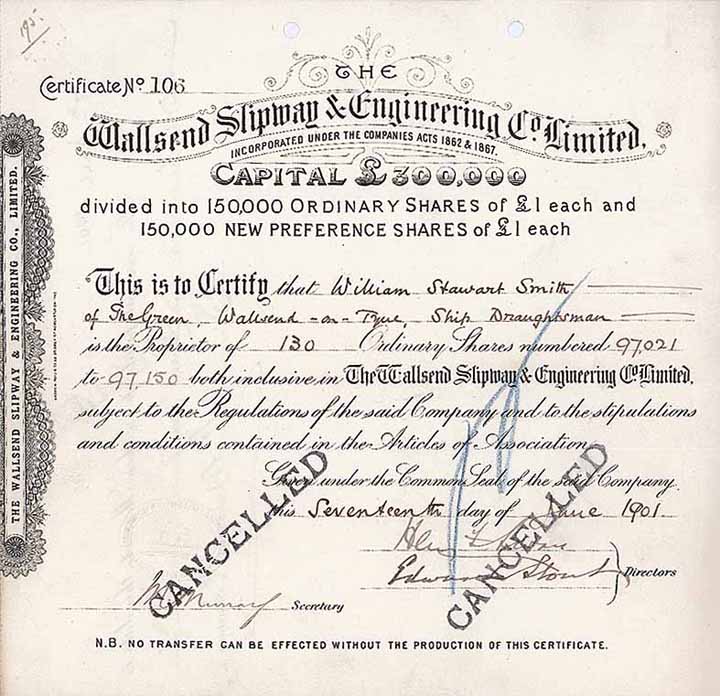 195.
Certificate Nº 106
THE
Wallsend Slipway & Engineering Co. Limited.
INCORPORATED UNDER THE COMPANIES ACTS 1862 & 1867.
CAPITAL £300,000
divided into 150,000 ORDINARY SHARES of £1 each and
150,000 NEW PREFERENCE SHARES of £1 each
This is to Certify that William Stewart Smith
of The Green, Wallsend-on-Tyne, Ship Draughtsman
is the Proprietor of 130 Ordinary Shares numbered 97,021
to 97,150 both inclusive in The Wallsend Slipway & Engineering Co. Limited,
subject to the Regulations of the said Company and to the stipulations
and conditions contained in the Articles of Association.
Given under the Common Seal of the said Company
this Seventeenth day of June 1901
Edward Stout
Directors
Murray Secretary
CANCELLED
CANCELLED
N.B. NO TRANSFER CAN BE EFFECTED WITHOUT THE PRODUCTION OF THIS CERTIFICATE.
THE WALLSEND SLIPWAY & ENGINEERING CO., LIMITED.